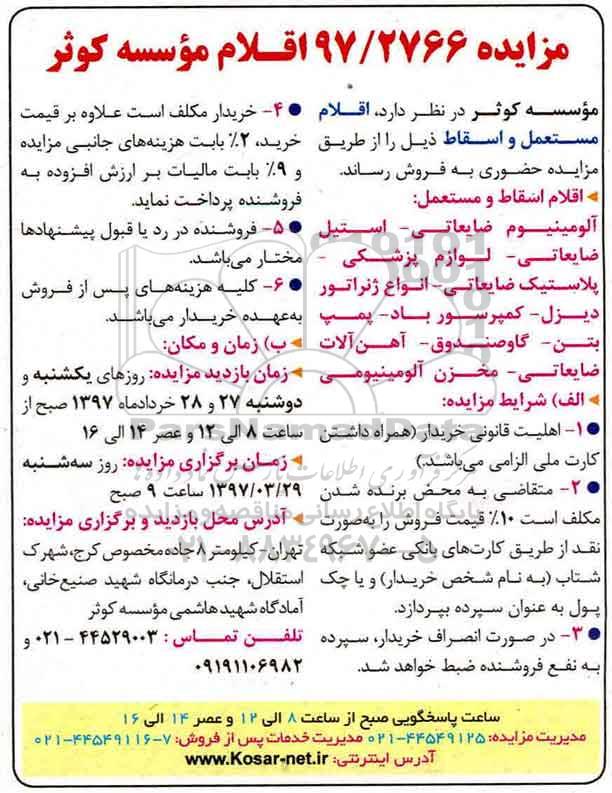 مزایده ۹۷/۲۷۶۶ اقلام مؤسسه کوثر
مؤسسه کوثر در نظر دارد، اقلام
مستعمل و اسقاط ذیل را از طریق
مزایده حضوری به فروش رساند.
اقلام اسقاط و مستعمل:
آلومینیوم ضایعاتی- استیل
ضایعاتی- لوازم پزشکی -
پلاستیک ضایعاتی- انواع ژنراتور
دیزل- کمپرسور باد- پمپ
بتن- گاوصندوق- آهن‌آلات
ضایعاتی- مخزن آلومینیومی
الف) شرایط مزایده:
۱- اهلیت قانونی خریدار (همراه داشتن
کارت ملی الزامی می‌باشد.)
۲- متقاضی به محض برنده شدن
مکلف است ۱۰٪ قیمت فروش را به‌صورت
نقد از طریق کارت‌های بانکی عضو شبکه
شتاب (به نام شخص خریدار) و یا چک
پول به عنوان سپرده بپردازد.
۳- در صورت انصراف خریدار، سپرده
به نفع فروشنده ضبط خواهد شد.
۴- خریدار مکلف است علاوه بر قیمت
خرید، ۲٪ بابت هزینه‌های جانبی مزایده
و ۹٪ بابت مالیات بر ارزش افزوده به
فروشنده پرداخت نماید.
۵- فروشنده در رد یا قبول پیشنهادها
مختار می‌باشد.
۶- کلیه هزینه‌های پس از فروش
به‌عهده خریدار می‌باشد.
ب) زمان و مکان:
زمان بازدید مزایده: روزهای یکشنبه و
دوشنبه ۲۷ و ۲۸ خردادماه ۱۳۹۷ صبح از
ساعت ۸ الی ۱۲ و عصر ۱۴ الی ۱۶
زمان برگزاری مزایده: روز سه‌شنبه
۱۳۹۷/۰۳/۲۹ ساعت ۹ صبح
آدرس محل بازدید و برگزاری مزایده:
تهران-کیلومتر ۸ جاده مخصوص کرج، شهرک
استقلال، جنب درمانگاه شهید صنیع‌خانی،
آمادگاه شهید هاشمی مؤسسه کوثر
تلفن تماس: ۴۴۵۲۹۰۰۳ - ۰۲۱ و
۰۹۱۹۱۱۰۶۹۸۲
ساعت پاسخگویی صبح از ساعت ۸ الی ۱۲ و عصر ۱۴ الی ۱۶
مدیریت مزایده: ۴۴۵۴۹۱۲۵-۰۲۱ مدیریت خدمات پس از فروش: ۷-۴۴۵۴۹۱۱۶-۰۲۱
آدرس اینترنتی: www.Kosar-net.ir
ParsNamadData
پایگاه اطلاع رسانی مناقصه و مزایده
۰۲۱-۸۸۳۴۹۶۷۰-۵